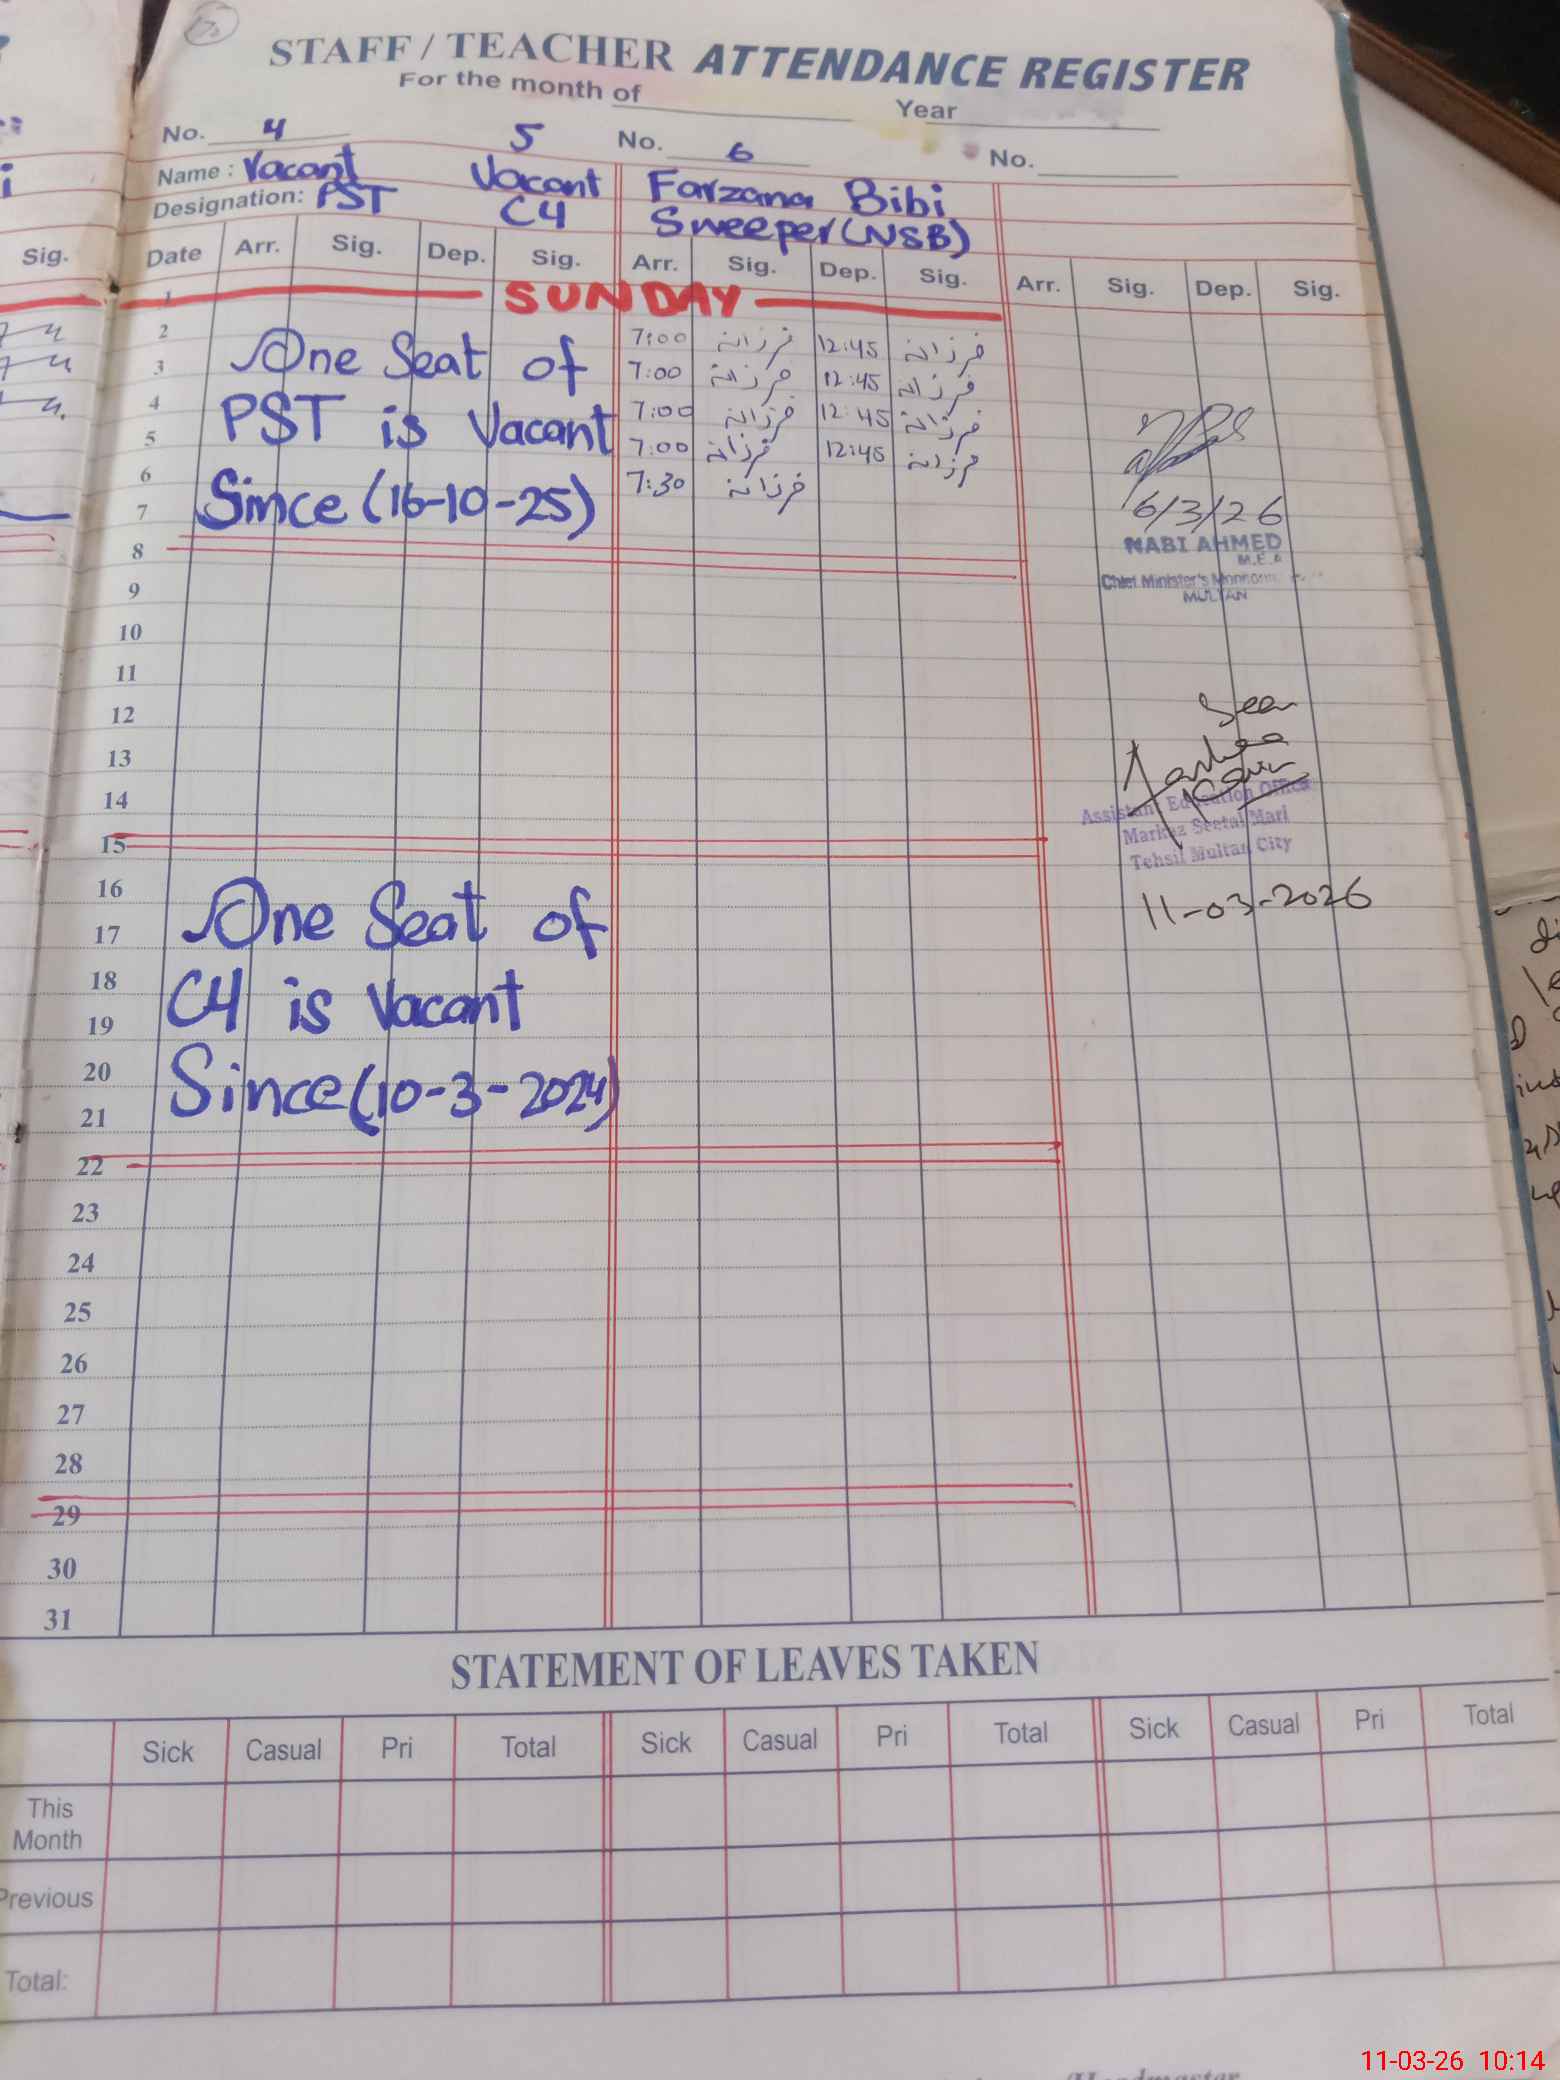 STAFF / TEACHER ATTENDANCE REGISTER
For the month of Year
No. 4 5 No. 6 No.
Name : Vacant Vacant Farzana Bibi
Designation: PST C4 Sweeper (NSB)
Sig. Date Arr. Sig. Dep. Sig. Arr. Sig. Dep. Sig. Arr. Sig. Dep. Sig.
1 SUNDAY
2 7:00 فرزانہ 12:45 فرزانہ
3 7:00 فرزانہ 12:45 فرزانہ
4 7:00 فرزانہ 12:45 فرزانہ
5 7:00 فرزانہ 12:45 فرزانہ
6 7:30 فرزانہ
7
One Seat of
PST is Vacant
Since (16-10-25)
6/3/26
NABI AHMED
M.E.A
Chief Minister's
MULTAN
8
9
10
11
12
13
14
15
Seen
Assistant Education Officer
Markaz Seetal Mari
Tehsil Multan City
11-03-2026
16
17
18
19
20
21
One Seat of
C4 is Vacant
Since (10-3-2024)
22
23
24
25
26
27
28
29
30
31
STATEMENT OF LEAVES TAKEN
Sick Casual Pri Total Sick Casual Pri Total Sick Casual Pri Total
This
Month
Previous
Total:
/Headmaster
11-03-26 10:14